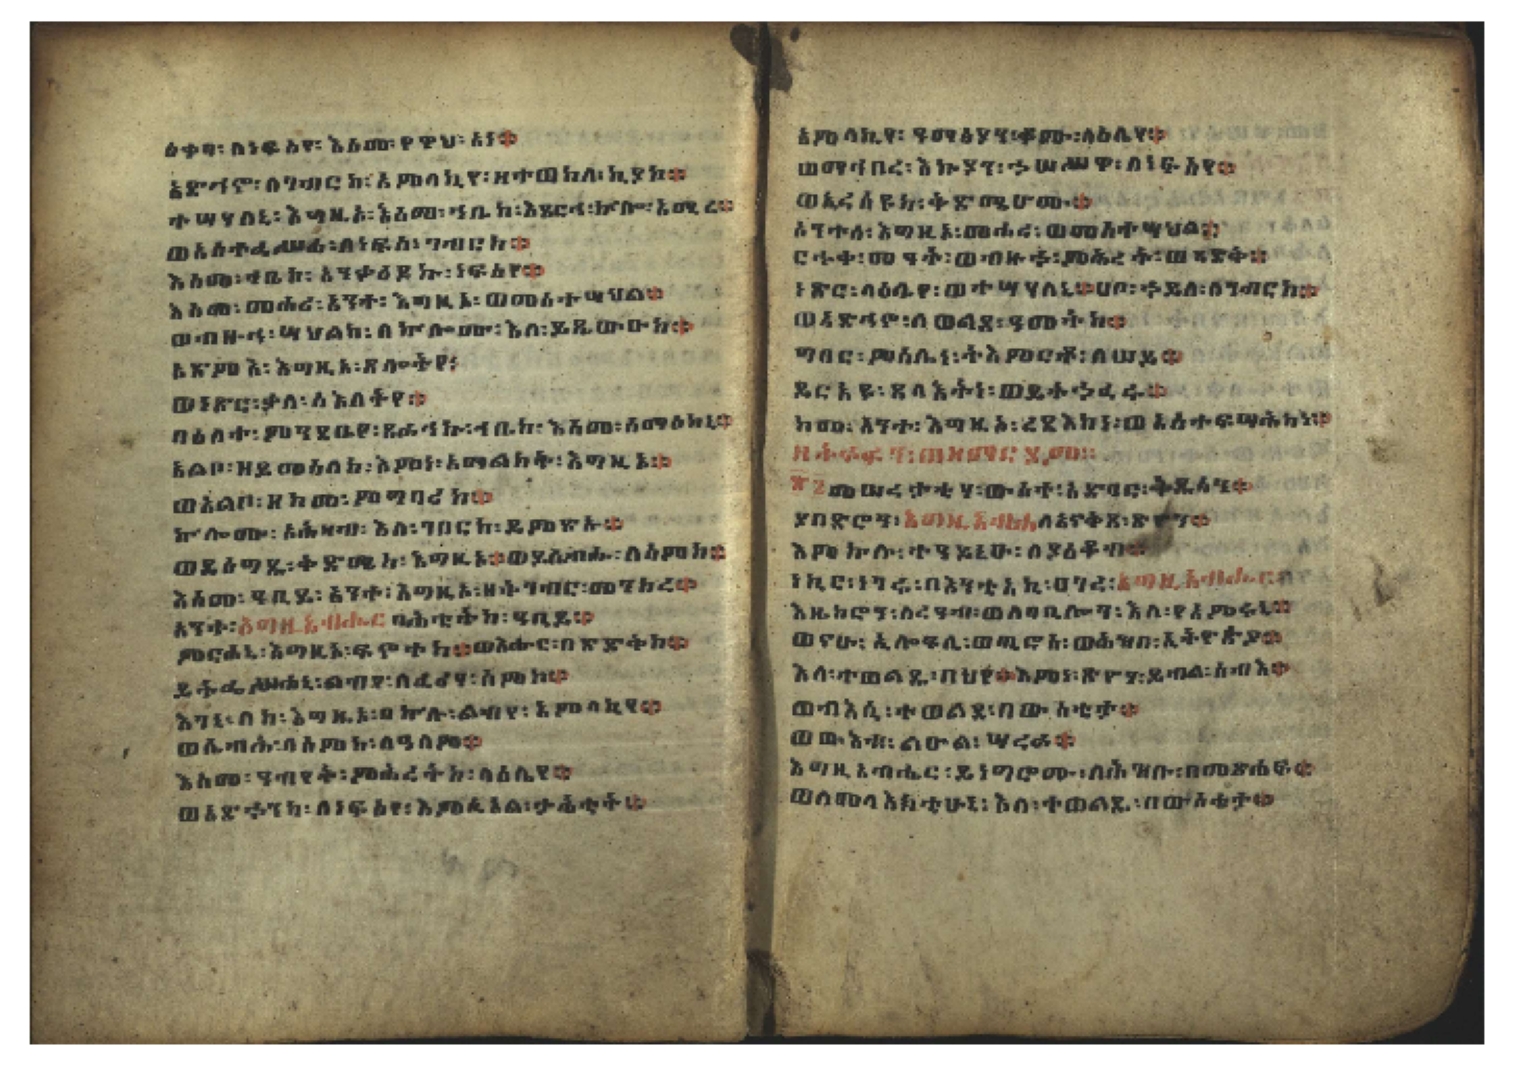 ዕቀባ፡ ለነፍስየ፡ እስመ፡ የዋህ፡ አነ።
አድኅኖ፡ ለገብርከ፡ አምላኪየ፡ ዘተወከለ፡ ኪያከ።
ተሣሃለኒ፡ እግዚኦ፡ እስመ፡ ኀቤከ፡ እጸርኅ፡ ኵሎ፡ አሚረ።
ወአስተፈሥሓ፡ ለነፍሰ፡ ገብርከ።
እስመ፡ ኀቤከ፡ አንቃዕደኩ፡ ነፍስየ።
እስመ፡ መሐሪ፡ አንተ፡ እግዚኦ፡ ወመስተሣህል።
ወብዙኅ፡ ሣህልከ፡ ለኵሎሙ፡ እለ፡ ይጼውዑከ።
አጽምእ፡ እግዚኦ፡ ጸሎትየ፡
ወነጽር፡ ቃለ፡ ስእለትየ።
በዕለተ፡ ምንዳቤየ፡ ጸራኅኩ፡ ኀቤከ፡ እስመ፡ ሰማዕከኒ።
አልቦ፡ ዘይመስለከ፡ እምነ፡ አማልክት፡ እግዚኦ።
ወአልቦ፡ ዘከመ፡ ምግባሪከ።
ኵሎሙ፡ አሕዛብ፡ እለ፡ ገበርከ፡ ይምጽኡ።
ወይስግዱ፡ ቅድሜከ፡ እግዚኦ። ወያአኵቱ፡ ለስምከ።
እስመ፡ ዓቢይ፡ አንተ፡ እግዚኦ፡ ዘትገብር፡ መንክረ።
አንተ፡ እግዚአብሔር፡ ባሕቲትከ፡ ዓቢይ።
ምርሐኒ፡ እግዚኦ፡ ፍኖተከ። ወአሐውር፡ በጽድቅከ።
ይትፌሥሐኒ፡ ልብየ፡ ለፈሪሃ፡ ስምከ።
እገኒ፡ ለከ፡ እግዚኦ፡ በኵሉ፡ ልብየ፡ አምላኪየ።
ወእሴብሕ፡ ለስምከ፡ ለዓለም።
እስመ፡ ዓብየት፡ ምሕረትከ፡ ላዕሌየ።
ወአድኀንካ፡ ለነፍስየ፡ እምሲኦል፡ ታሕቲት።
አምላኪየ፡ ዓማፅያን፡ ቆሙ፡ ላዕሌየ።
ወማኅበረ፡ እኩያን፡ ኀሠሥዋ፡ ለነፍስየ።
ወኢረሰዩከ፡ ቅድሜሆሙ።
አንተሰ፡ እግዚኦ፡ መሐሪ፡ ወመስተሣህል።
ርኁቀ፡ መዓት፡ ወብዙኀ፡ ምሕረት፡ ወጻድቅ።
ነጽር፡ ላዕሌየ፡ ወተሣሃለኒ። ሀቦ፡ ኀይለ፡ ለገብርከ።
ወአድኅኖ፡ ለወልደ፡ ዓመትከ።
ግበር፡ ምስሌነ፡ ትእምርተ፡ ለሠናይ።
ይርአዩ፡ ጸላእትነ፡ ወይትኀፈሩ።
ከመ፡ አንተ፡ እግዚኦ፡ ረዳእከነ፡ ወአስተፍሣሕከነ።
ዘደቂቀ፡ ቆሬ፡ መዝሙር፡
መሠረታቲሃ፡ ውስተ፡ አድባር፡ ቅዱሳን።
ያበድሮን፡ እግዚአብሔር፡ ለአናቅጸ፡ ጽዮን።
እምኵሉ፡ ተዓይኒሁ፡ ለያዕቆብ።
ነኪር፡ ነገሩ፡ በእንቲአኪ፡ ሀገረ፡ እግዚአብሔር።
እዜከሮን፡ ለረዓብ፡ ወለባቢሎን፡ እለ፡ የአምራኒ።
ወናሁ፡ ኢሎፍሊ፡ ወጢሮስ፡ ወሕዝበ፡ ኢትዮጵያ።
እለ፡ ተወልዱ፡ በህየ። እምነ፡ ጽዮን፡ ይብል፡ ሰብእ።
ወብእሲ፡ ተወልደ፡ በውስቴታ።
ወውእቱ፡ ልዑል፡ ሣረራ።
እግዚአብሔር፡ ይነግሮሙ፡ ለሕዝቡ፡ በመጽሐፍ።
ወለመላእክቲሁኒ፡ እለ፡ ተወልዱ፡ በውስቴታ።